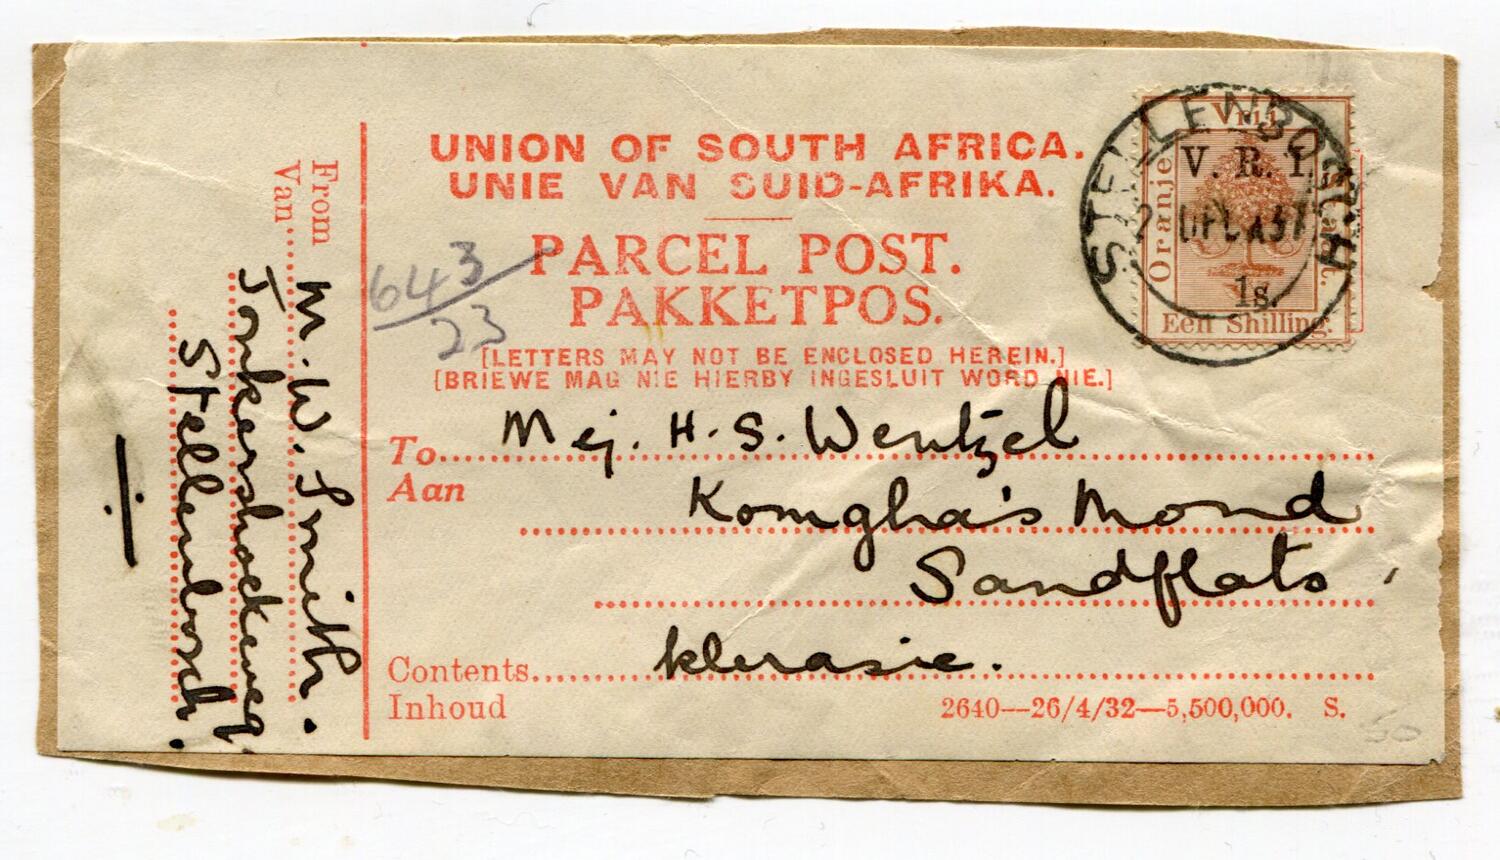 UNION OF SOUTH AFRICA.
UNIE VAN SUID-AFRIKA.
PARCEL POST.
PAKKETPOS.
[LETTERS MAY NOT BE ENCLOSED HEREIN.]
[BRIEWE MAG NIE HIERBY INGESLUIT WORD NIE.]
643
23
STELLENBOSCH
Vrij
Oranje
V. R. I.
1s.
Een Shilling.
From
Van
M. W. Smith.
Jonkershoekweg
Stellenbosch.
To Mej. H. S. Wentzel
Aan
Komgha's Mond
Sandflats
Contents klerasie.
Inhoud
2640—26/4/32—5,500,000. S.